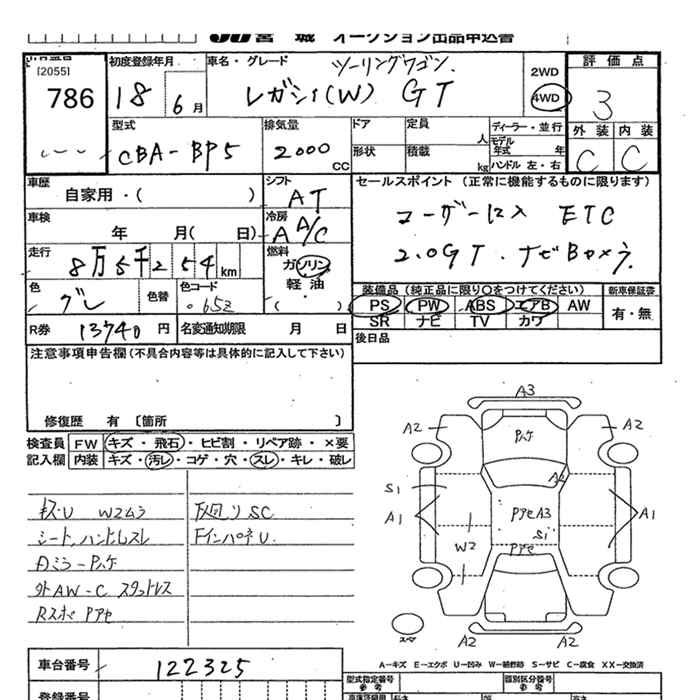 JU 宮 城 オークション出品申込書
[2055]
786
初度登録年月
18 6月
車名・グレード
ツーリングワゴン
レガシィ(W) GT
2WD
4WD
評価点
3
外装 内装
C C
型式
CBA-BP5
排気量
2000 CC
ドア
定員
人
形状
積載
kg
ディーラー・並行
モデル年式 年
ハンドル 左・右
車歴
自家用・( )
シフト
AT
セールスポイント (正常に機能するものに限ります)
ユーザー仕入 ETC
2.0GT.ナビBカメラ.
車検
年 月( 日)
冷房
A A/C
走行
8万5千254km
燃料
ガソリン
軽油
色
グレ
色替
色コード
65Z
装備品 (純正品に限り○をつけてください)
PS PW ABS エアB AW
SR ナビ TV カワ
新車保証書
有・無
R券 13740円
名変通知期限 月 日
後日品
注意事項申告欄(不具合内容等は具体的に記入して下さい)
修復歴 有 〔箇所 〕
検査員記入欄
FW キズ・飛石・ヒビ割・リペア跡・×要
内装 キズ・汚レ・コゲ・穴・スレ・キレ・破レ
キズ・U W2ムラ
シート,ハンドルスレ
外AW-C スタッドレス
下回りSC
A3
A2 A2
A2
S1
A1 A1
PアセA3
S1
W2
Pアセ
A2 A2
A-キズ E-エクボ U-凹み W-補修跡 S-サビ C-腐食 XX-交換済
車台番号
122325
登録番号
型式指定番号
参考
類別区分番号
参考